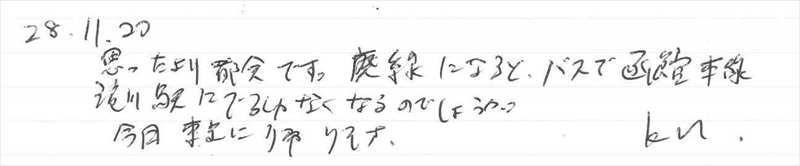 28.11.20
思ったより都会です。廃線になると、バスで函館本線
滝川駅にでるしかなくなるのでしょうか。
今日東京に帰ります。
kn.